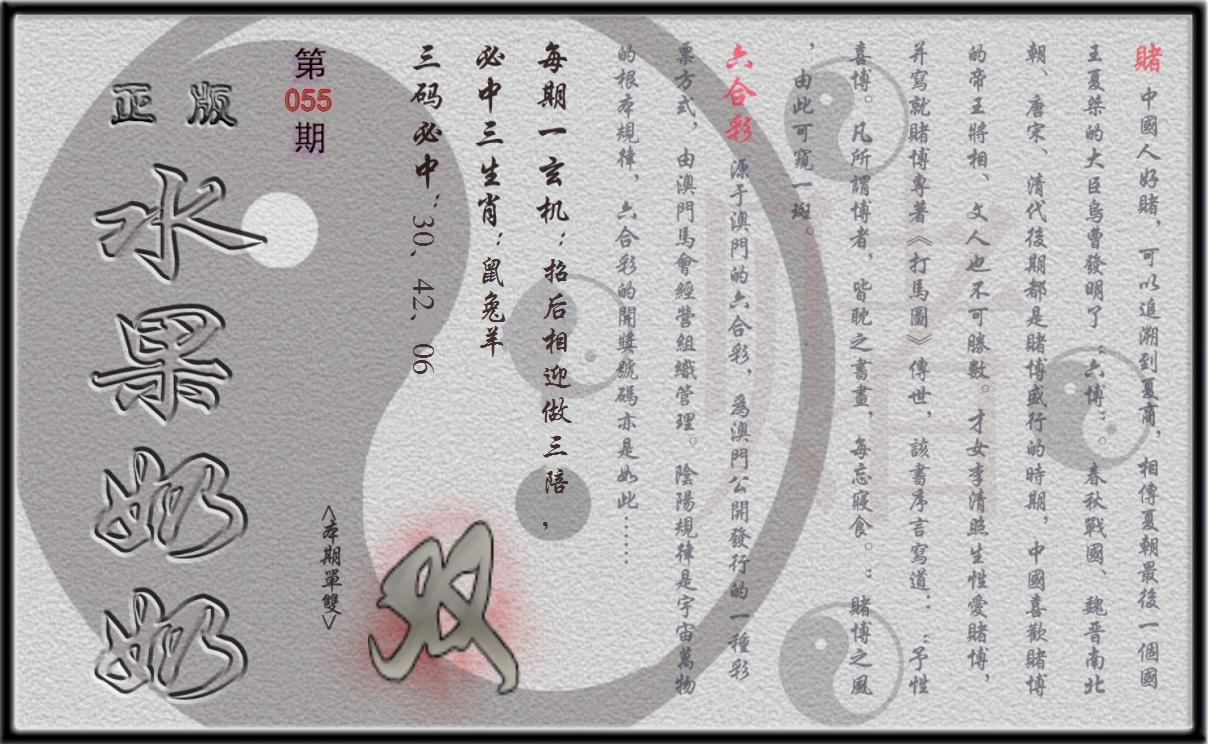 賭 中國人好賭，可以追溯到夏商，相傳夏朝最後一個國
王夏桀的大臣烏曹發明了“六博”。春秋戰國、魏晉南北
朝、唐宋、清代後期都是賭博盛行的時期，中國喜歡賭博
的帝王將相、文人也不可勝數。才女李清照生性愛賭博，
并寫就賭博專著《打馬圖》傳世，該書序言寫道：“予性
喜博。凡所謂博者，皆耽之書畫，每忘寢食。：賭博之風
，由此可窺一斑。
六合彩 源于澳門的六合彩，為澳門公開發行的一種彩
票方式，由澳門馬會經營組織管理。陰陽規律是宇宙萬物
的根本規律，六合彩的開獎號碼亦是如此……
每期一玄机：招后相迎做三陪，
必中三生肖：鼠兔羊
三码必中：30、42、06
双
<本期單雙>
第
055
期
正版
水果奶奶
賭